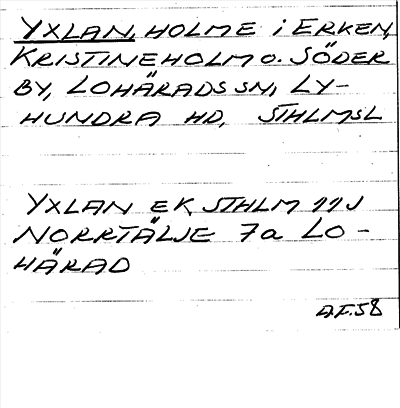 YXLAN, HOLME i ERKEN,
KRISTINEHOLM o. SÖDER
BY, LOHÄRADS SN, LY-
HUNDRA HD, STHLMSL
YXLAN EK, STHLM 11J
NORRTÄLJE 7a LO-
HÄRAD
A.F.58